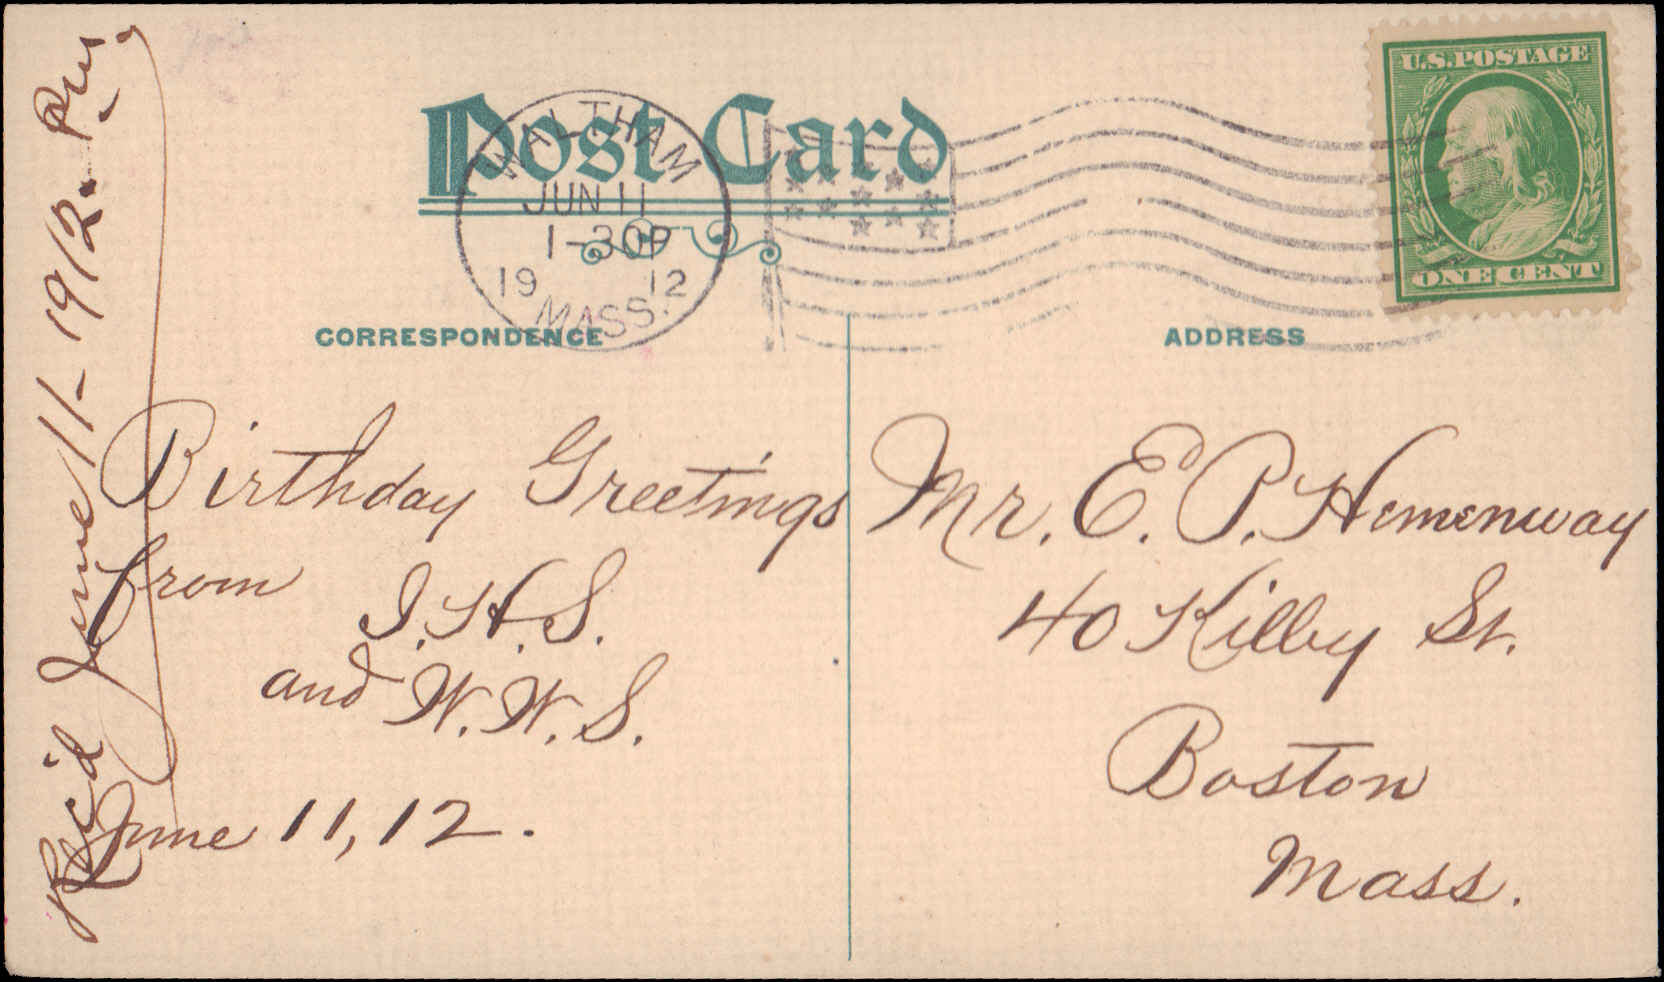 Post Card
WALTHAM
JUN 11
1-30P
19 12
MASS.
U.S. POSTAGE
ONE CENT
CORRESPONDENCE
ADDRESS
Birthday Greetings
from
I. H. S.
and W. W. S.
June 11, 12.
Mr. E. P. Hemenway
40 Kilby St.
Boston
Mass.
Rec'd June 11 - 1912. P.M.